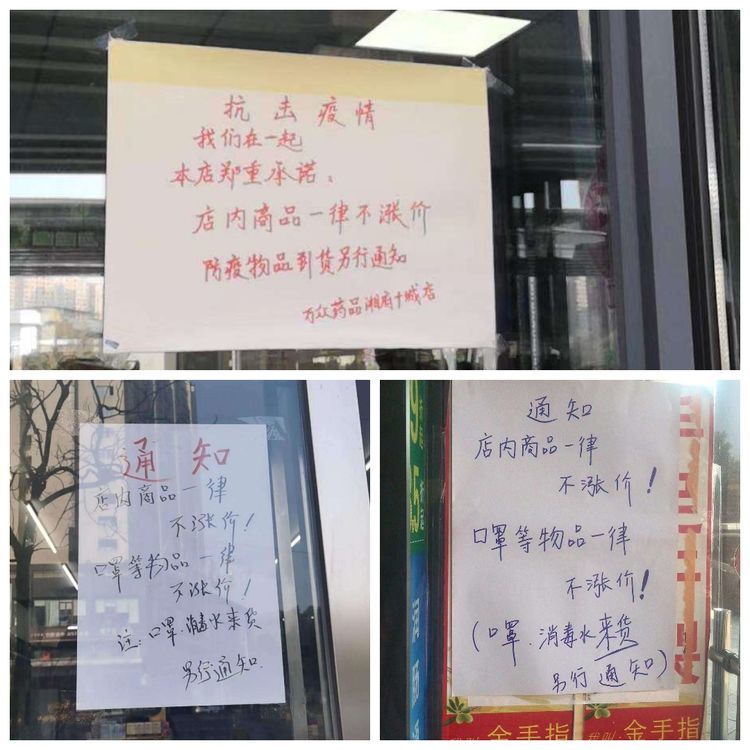 抗击疫情
我们在一起
本店郑重承诺：
店内商品一律不涨价
防疫物品到货另行通知
万众药品湘府十城店
通知
店内商品一律
不涨价！
口罩等物品一律
不涨价！
注：口罩.消毒水来货
另行通知.
通知
店内商品一律
不涨价！
口罩等物品一律
不涨价！
（口罩.消毒水来货
另行通知）
我叫
金手指
我叫
金手指